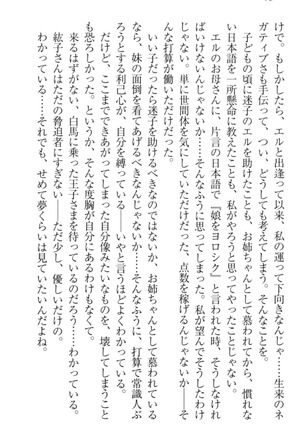 けで。もしかしたら、エルと出逢って以来、私の運って下向きなんじゃ……生来のネ
ガティブさも手伝って、つい、どうしても考えてしまう。
子どもの頃に迷子のエルを助けたことも、お姉ちゃんとして慕われてから、慣れな
い日本語を一所懸命に教えたことも、私がやろうと思ってやったことじゃない。
エルのお母さんに、片言の日本語で『娘をヨロシク』と言われた時、そうしなけれ
ばいけないんじゃないか――そんなふうに思ってしまっただけ。私が望んでそうしたわけ
じゃない。単に世間体を気にしていただけだった。点数を稼げるんじゃないか――そ
んな打算が働いただけだった。
いい子だったら迷子を助けるべきなのではないか、お姉ちゃんとして慕われている
なら、妹の面倒を看てあげるべきなんじゃないか――そんなふうに、打算で常識人ぶ
ろうとする利己心が、自分を縛っている――いやと言うほどよくわかっている。
だけど、ここまでできあがってしまった自分像みたいなものを、壊してしまうこと
も恐ろしかった。というか、そんな度胸が自分にあるわけもなくて。
来るはずがない、白馬に乗った王子さまを待っているのだろう……わかっている。
紘子さんはただの脅迫者にすぎない――ただ少し、優しいだけの。
わかっている……それでも、せめて夢くらいは見ていたいんだよね。